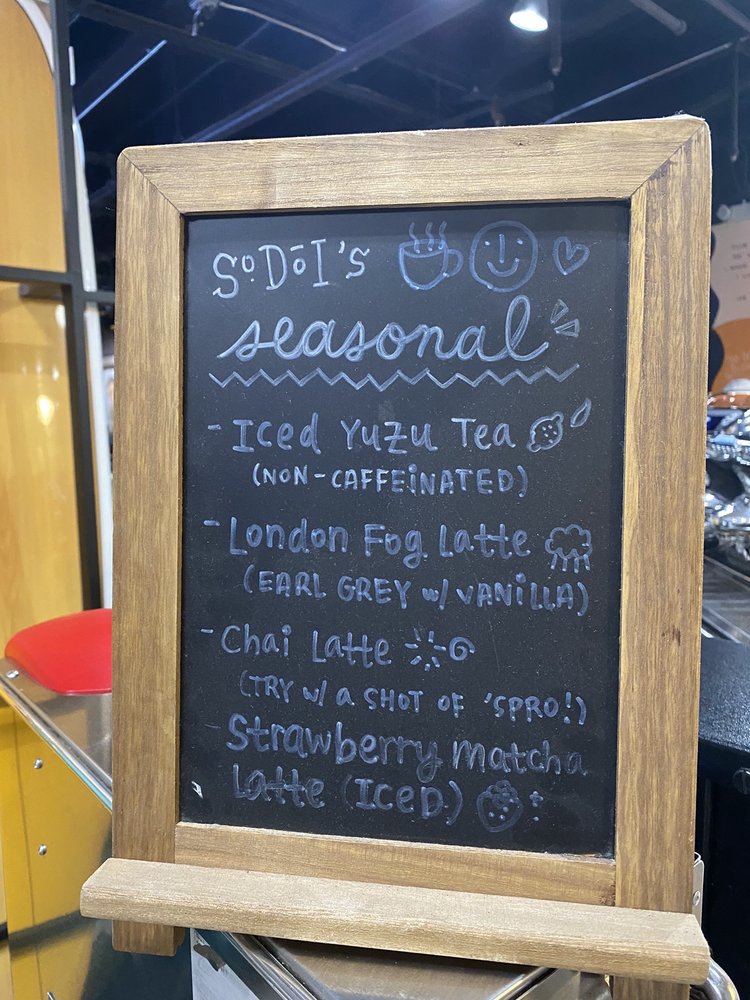 SoDōI's
seasonal
- Iced Yuzu Tea
(NON-CAFFEINATED)
- London Fog Latte
(EARL GREY w/ VANILLA)
- Chai Latte
(TRY w/ A SHOT OF 'SPRO!)
- Strawberry matcha
Latte (ICED)